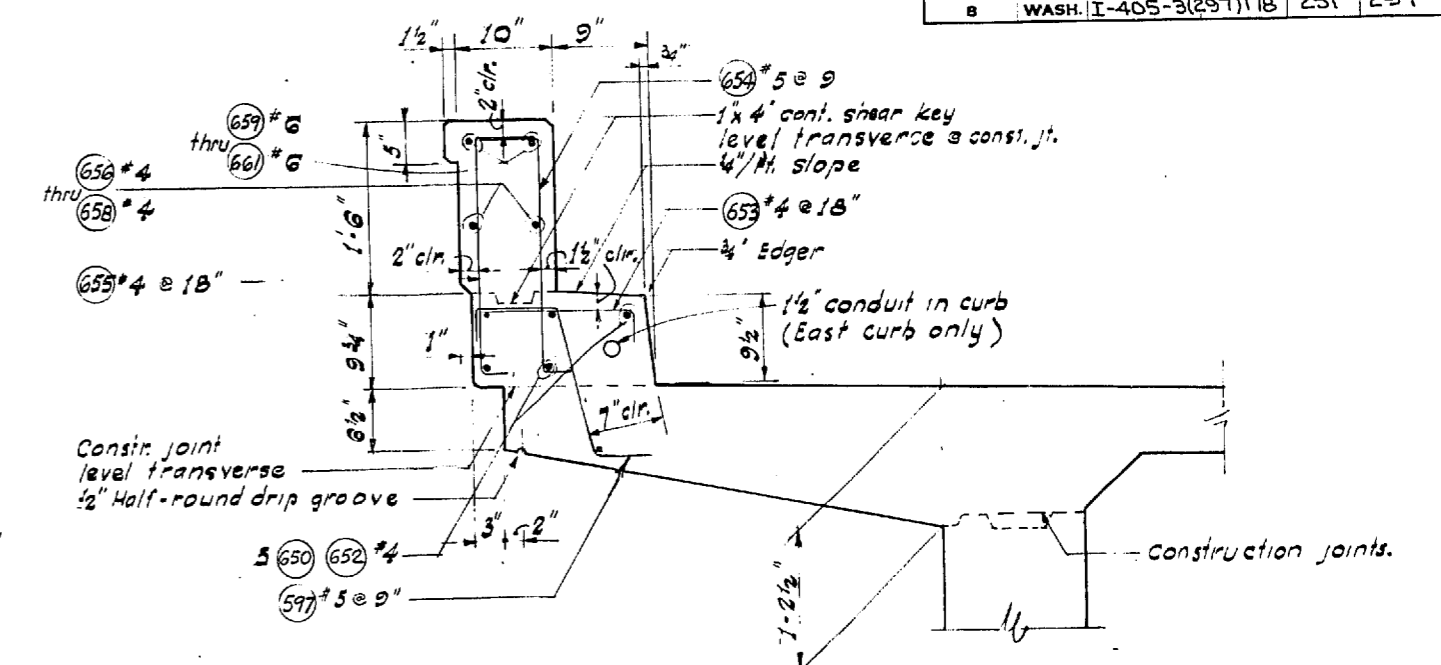 B WASH. I-405-3(297)118 231
1½" 10" 9"
¾"
2" clr.
654 #5 @ 9
1"x 4" cont. shear key
level transverse @ const. jt.
¼"/ft. slope
659 #6
thru
661 #6
5"
656 #4
thru
658 #4
653 #4 @ 18"
1'-6"
¾" Edger
2" clr.
1½" clr.
655 #4 @ 18"
1½" conduit in curb
(East curb only)
1"
9¾"
9½"
6½"
7" clr.
Constr. joint
level transverse
½" Half-round drip groove
3" 2"
5 650 652 #4
597 #5 @ 9"
1-2½"
Construction joints.